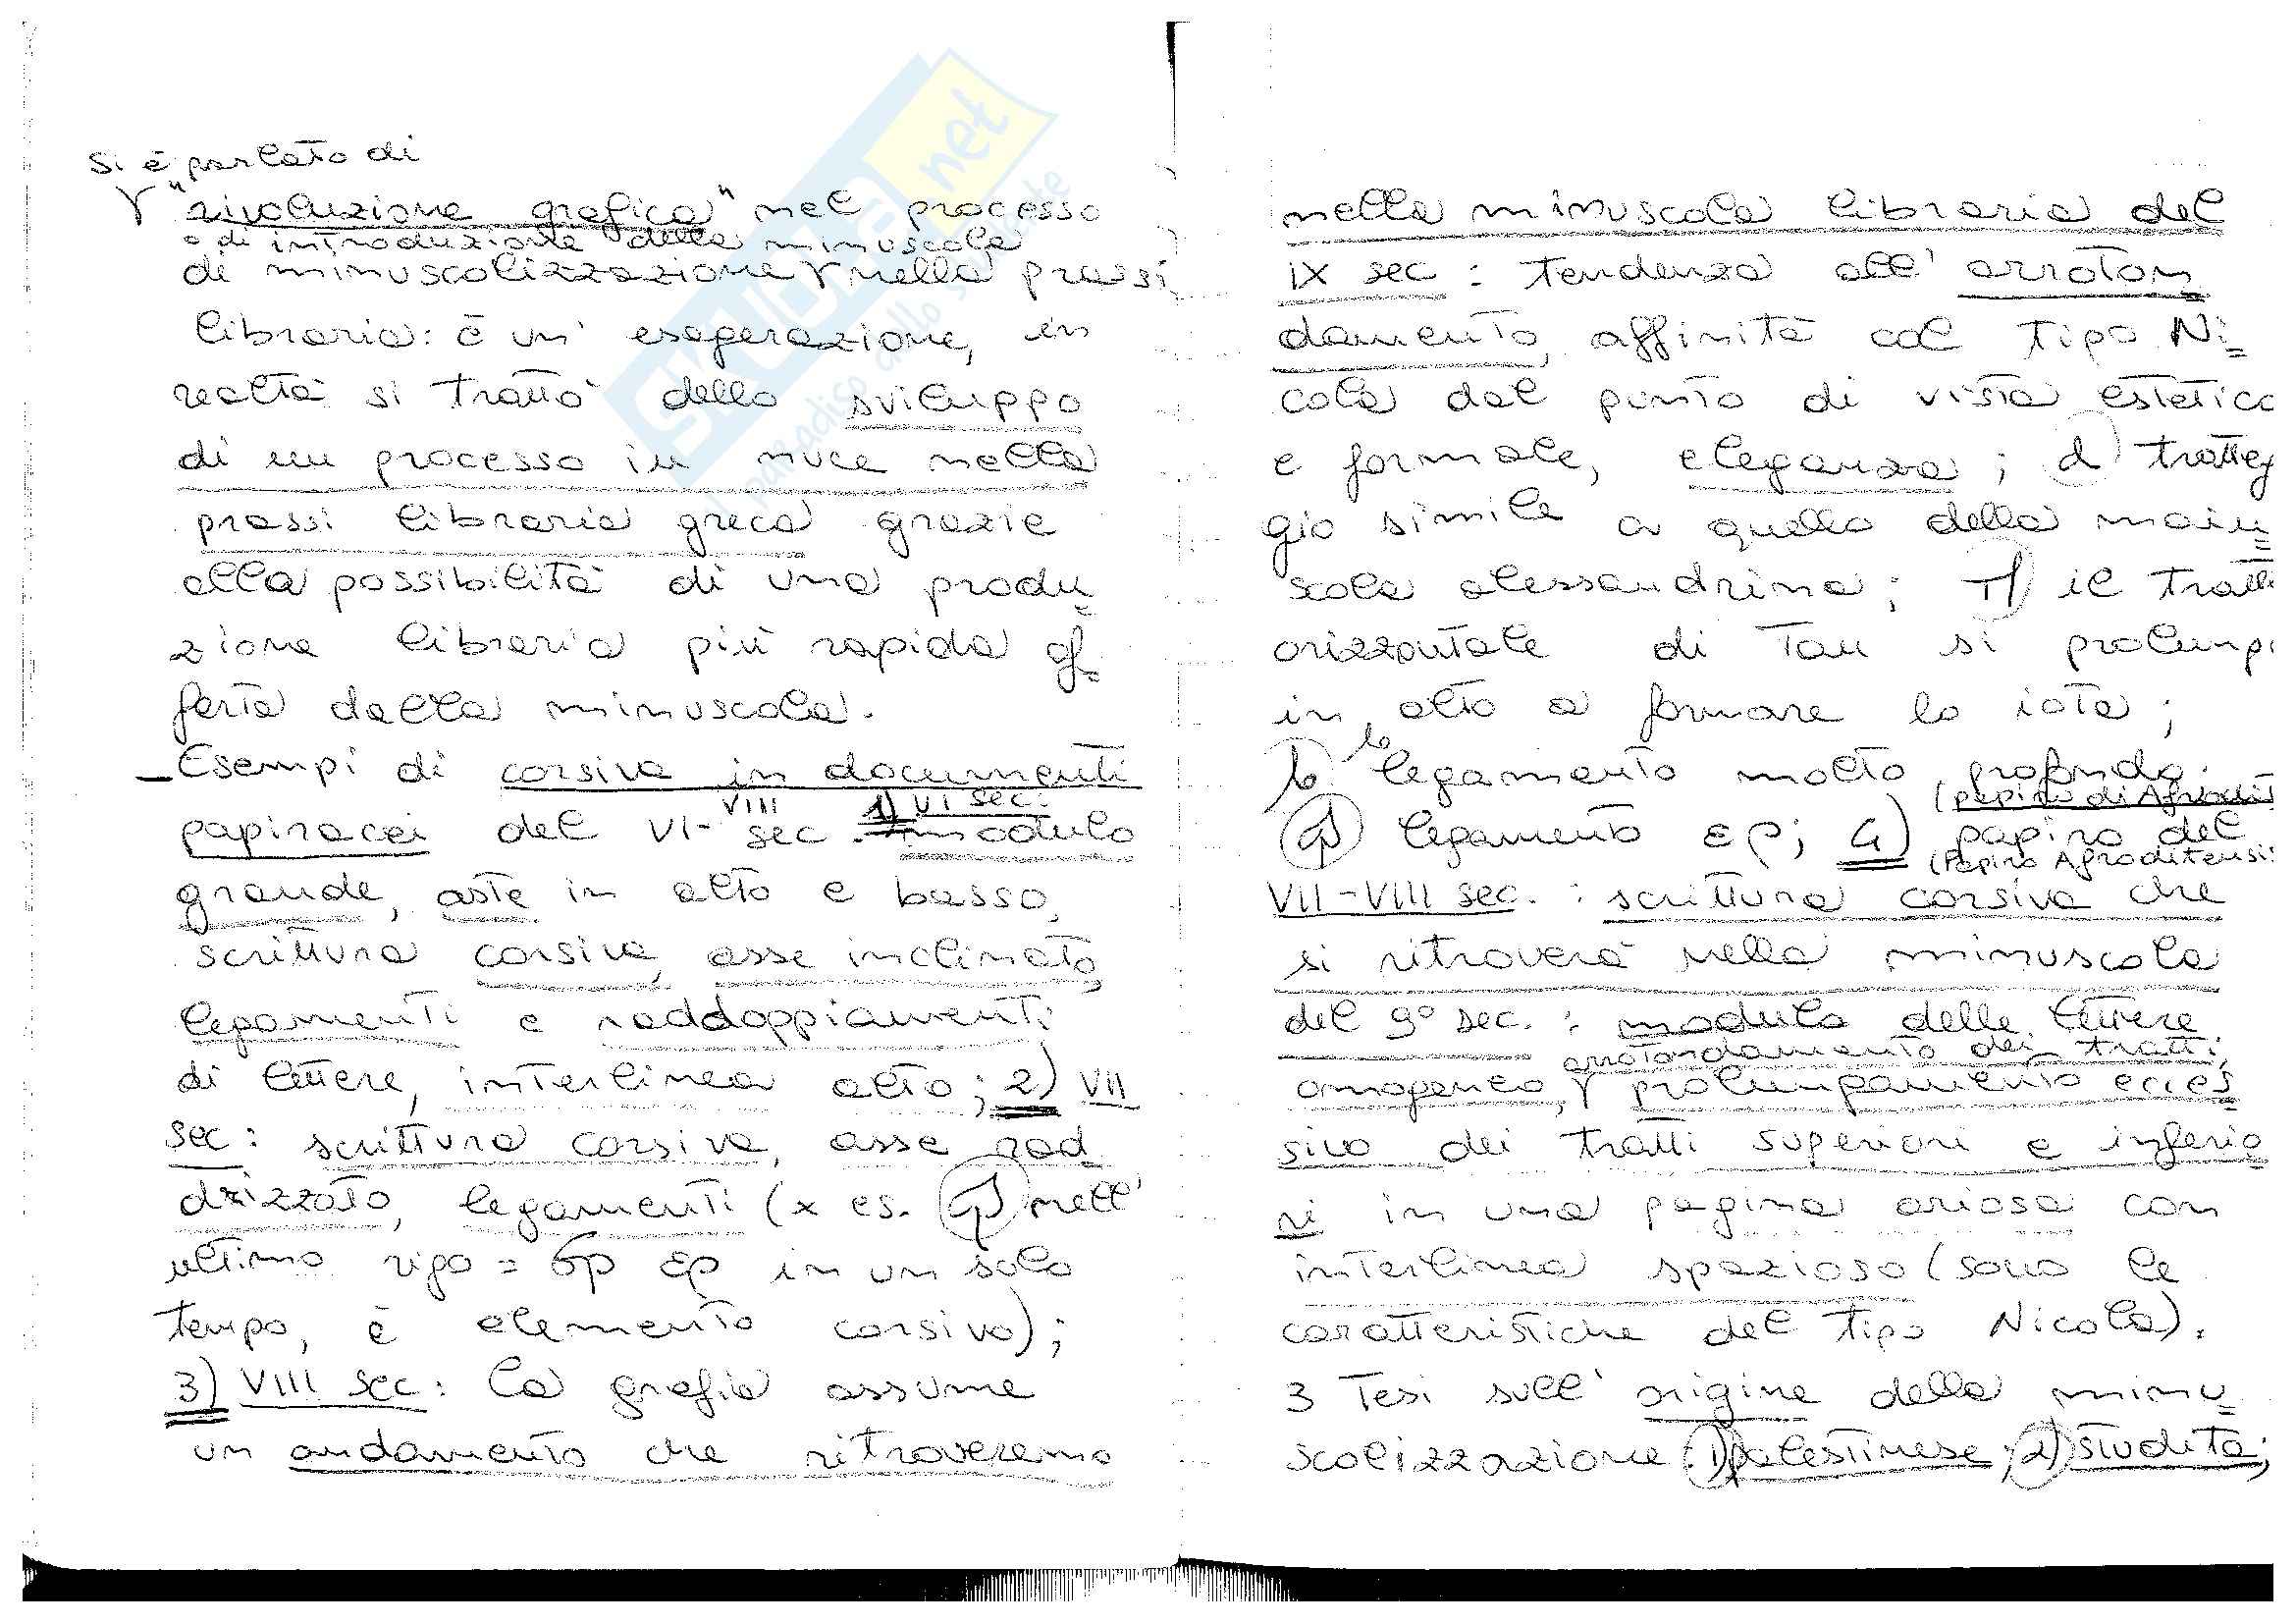 si è parlato di
"rivoluzione grafica" nel processo
o di introduzione della minuscola
di minuscolizzazione nella prassi
libraria: è un' esagerazione, in
realtà si trattò dello sviluppo
di un processo in nuce nella
prassi libraria greca grazie
alla possibilità di una produ=
zione libraria più rapida of=
ferta dalla minuscola.
- Esempi di corsiva in documenti
papiracei del VI-VIII sec. 1) VI sec: modulo
grande, aste in alto e basso,
scrittura corsiva, asse inclinato,
legamenti e raddoppiamenti
di lettere, interlineo alto; 2) VII
sec: scrittura corsiva, asse rad
drizzato, legamenti (x es. nell'
ultimo rigo = σρ ερ in un solo
tempo, è elemento corsivo);
3) VIII sec: la grafia assume
un andamento che ritroveremo
nella minuscola libraria del
IX sec: tendenza all' arroton
damento, affinità col tipo Ni=
cola dal punto di vista estetico
e formale, eleganza; α) tratteg
gio simile a quello della maiu=
scola alessandrina; il tratto
orizzontale di Tau si prolunga
in alto a formare lo iota;
lo legamento molto profondo.
(papiro di Afrodito
legamento ερ; 4) papiro del
(Papiro Afroditensis
VII-VIII sec. : scrittura corsiva che
si ritroverà nella minuscola
del 9° sec. : modulo delle lettere
arrotondamento dei tratti,
omogeneo, prolungamento ecces
sivo dei tratti superiori e inferio
ri in una pagina ariosa con
interlineo spazioso (sono le
caratteristiche del tipo Nicola).
3 Tesi sull' origine della minu=
scolizzazione: 1) palestinese; 2) studita;
STUDIA.net
paradiso dello studente